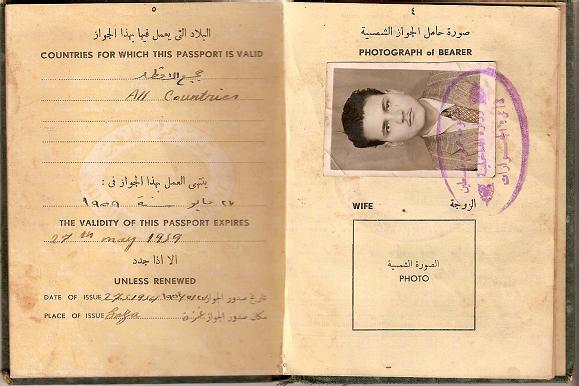 ٥
البلاد التى يعمل فيها بهذا الجواز
COUNTRIES FOR WHICH THIS PASSPORT IS VALID
جميع الاقطار
All Countries
ينتهى العمل بهذا الجواز فى :
٢٧ مايو سنة ١٩٥٩
THE VALIDITY OF THIS PASSPORT EXPIRES
27th may 1959
الا اذا جدد
UNLESS RENEWED
تاريخ صدور الجواز
DATE OF ISSUE
مكان صدور الجواز غزة
PLACE OF ISSUE Gaza
٤
صورة حامل الجواز الشمسية
PHOTOGRAPH of BEARER
WIFE الزوجة
الصورة الشمسية
PHOTO